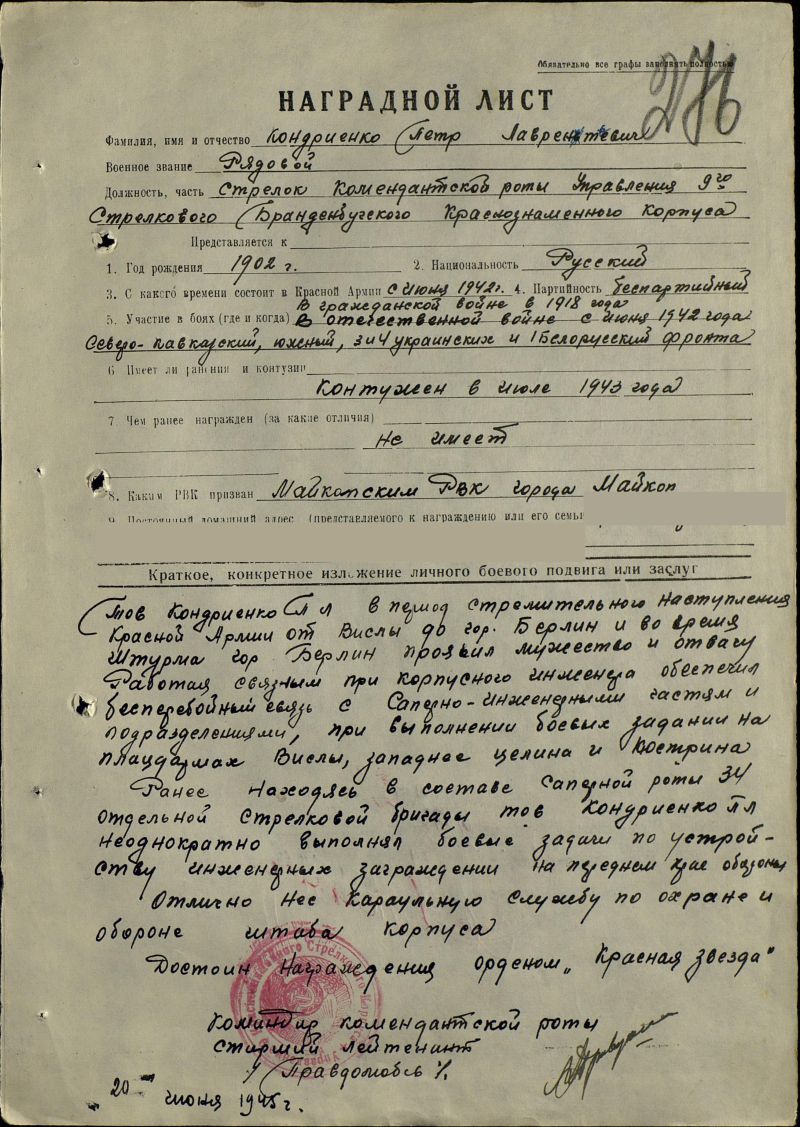 Обязательно все графы заполнять полностью
276
НАГРАДНОЙ ЛИСТ
Фамилия, имя и отчество Кондриенко Петр Лаврентевич
Военное звание Рядовой
Должность, часть Стрелок Комендантской роты Управления 9го
Стрелкового Бранденбугского Краснознаменного Корпуса
Представляется к
1. Год рождения 1902 г. 2. Национальность Русский
3. С какого времени состоит в Красной Армии с июня 1942 г. 4. Партийность беспартийный
В гражданской войне в 1918 года
5. Участие в боях (где и когда) В отечественной войне с июня 1942 года
Северо-кавкаский, южный, 3 и 4 украинских и 1 Белорусский фронта
6 Имеет ли ранения и контузии
Контужен в июле 1943 года
7. Чем ранее награжден (за какие отличия)
Не имеет
8. Каким РВК призван Майкопским РВК города Майкоп
9. Постоянный домашний адрес (представляемого к награждению или его семьи
Краткое, конкретное изложение личного боевого подвига или заслуг
Тов Кондриенко П л в период стремительного наступления
Красной Армии от Вислы до гор. Берлин и во время
Штурма гор Берлин проявил мужество и отвагу
Работая связным при корпусного инженера обеспечил
бесперебойным связь с Саперно-инженерными частям и
подразделениями, при выполнении боевых задании на
плацдармах Вислы, западнее целина и Кострина
Ранее находясь в составе Саперной роты 34
отдельной Стрелковой бригады тов Кондриенко П л
неоднократно выполнял боевые задачи по устрой-
ству инженерных заграждении на переднем крае обороны
Отлично нес караульную службу по охране и
обороне штаба корпуса
Достоин Награждения орденом „Красная звезда"
Командир комендантской роты
Старший лейтенант
/ Правдолюбов /.
20 июня 1945 г.